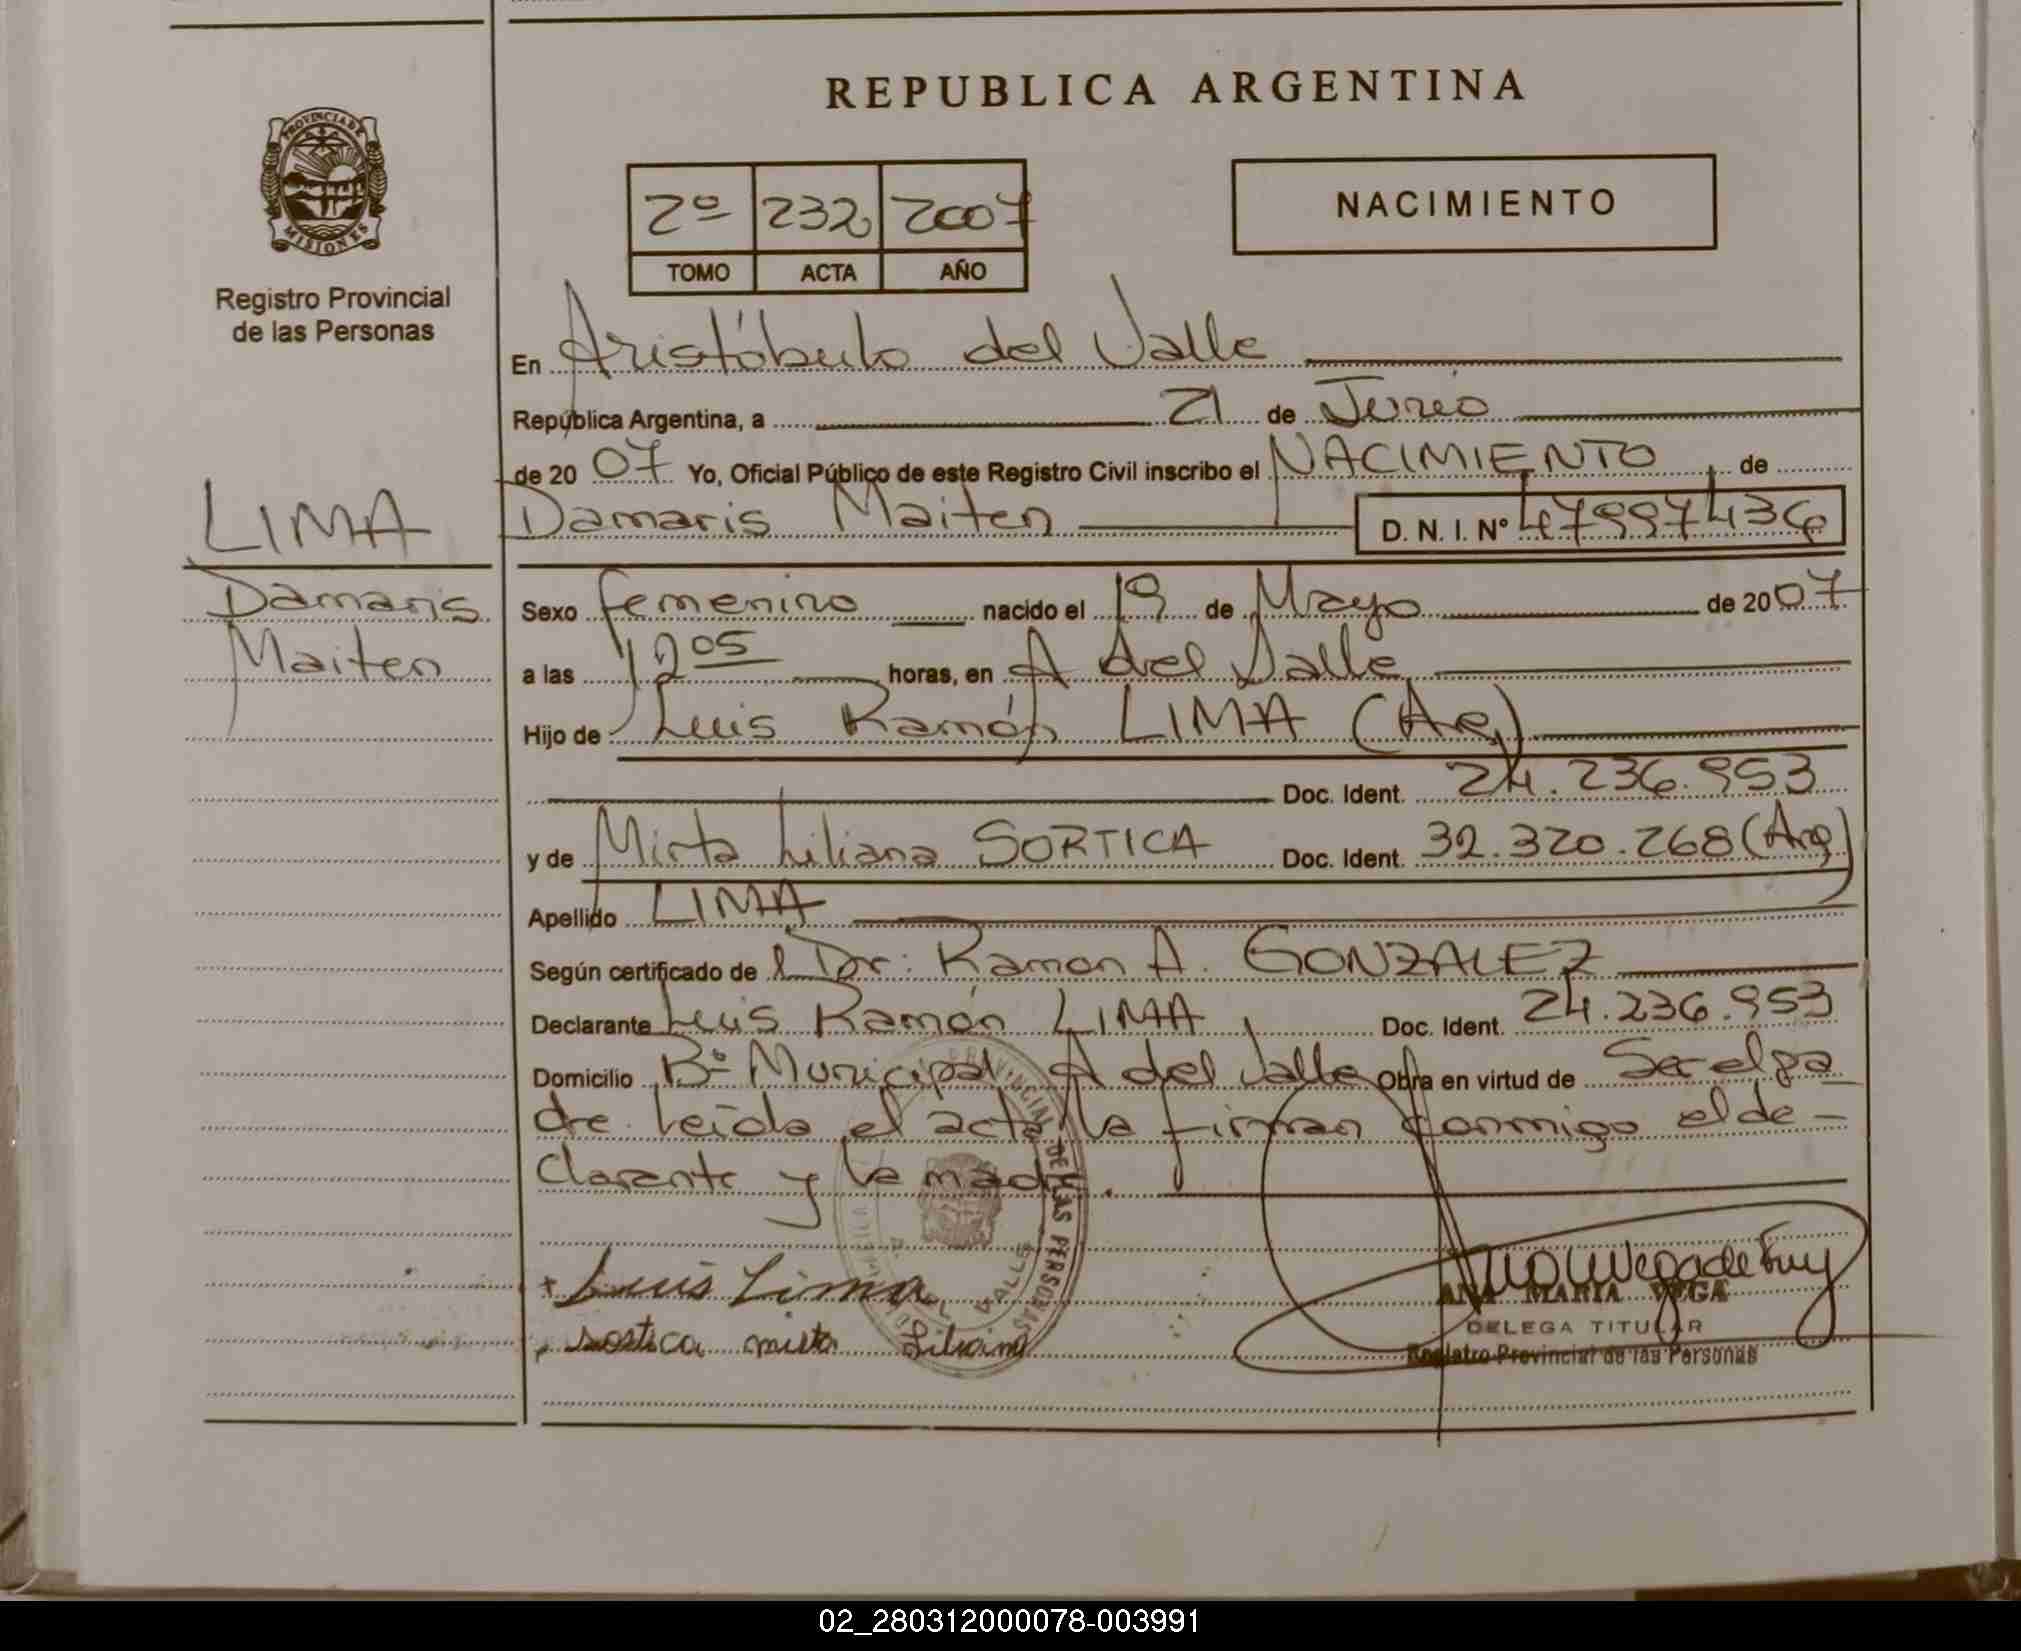 REPUBLICA ARGENTINA
PROVINCIA DE
MISIONES
Registro Provincial
de las Personas
2º 232 2007
TOMO ACTA AÑO
NACIMIENTO
En Aristóbulo del Valle
República Argentina, a 21 de Junio
de 20 07 Yo, Oficial Público de este Registro Civil inscribo el NACIMIENTO de
Damaris Maiten D. N. I. Nº 47997436
LIMA
Damaris
Maiten
Sexo femenino nacido el 19 de Mayo de 20 07
a las 12 05 horas, en A del Valle
Hijo de Luis Ramón LIMA (Arg)
Doc. Ident. 24.236.953
y de Mirta Liliana SORTICA Doc. Ident. 32.320.268 (Arg)
Apellido LIMA
Según certificado de l Dr: Ramon A. GONZALEZ
Declarante Luis Ramón LIMA Doc. Ident. 24.236.953
Domicilio Bº Municipal A del Valle Obra en virtud de Ser el pa
dre. Leída el acta la firman conmigo el de-
clarante y la madre.
Luis Lima
sostica mirta Liliana
ANA MARIA VEGA
DELEGA TITULAR
Registro Provincial de las Personas
02_280312000078-003991